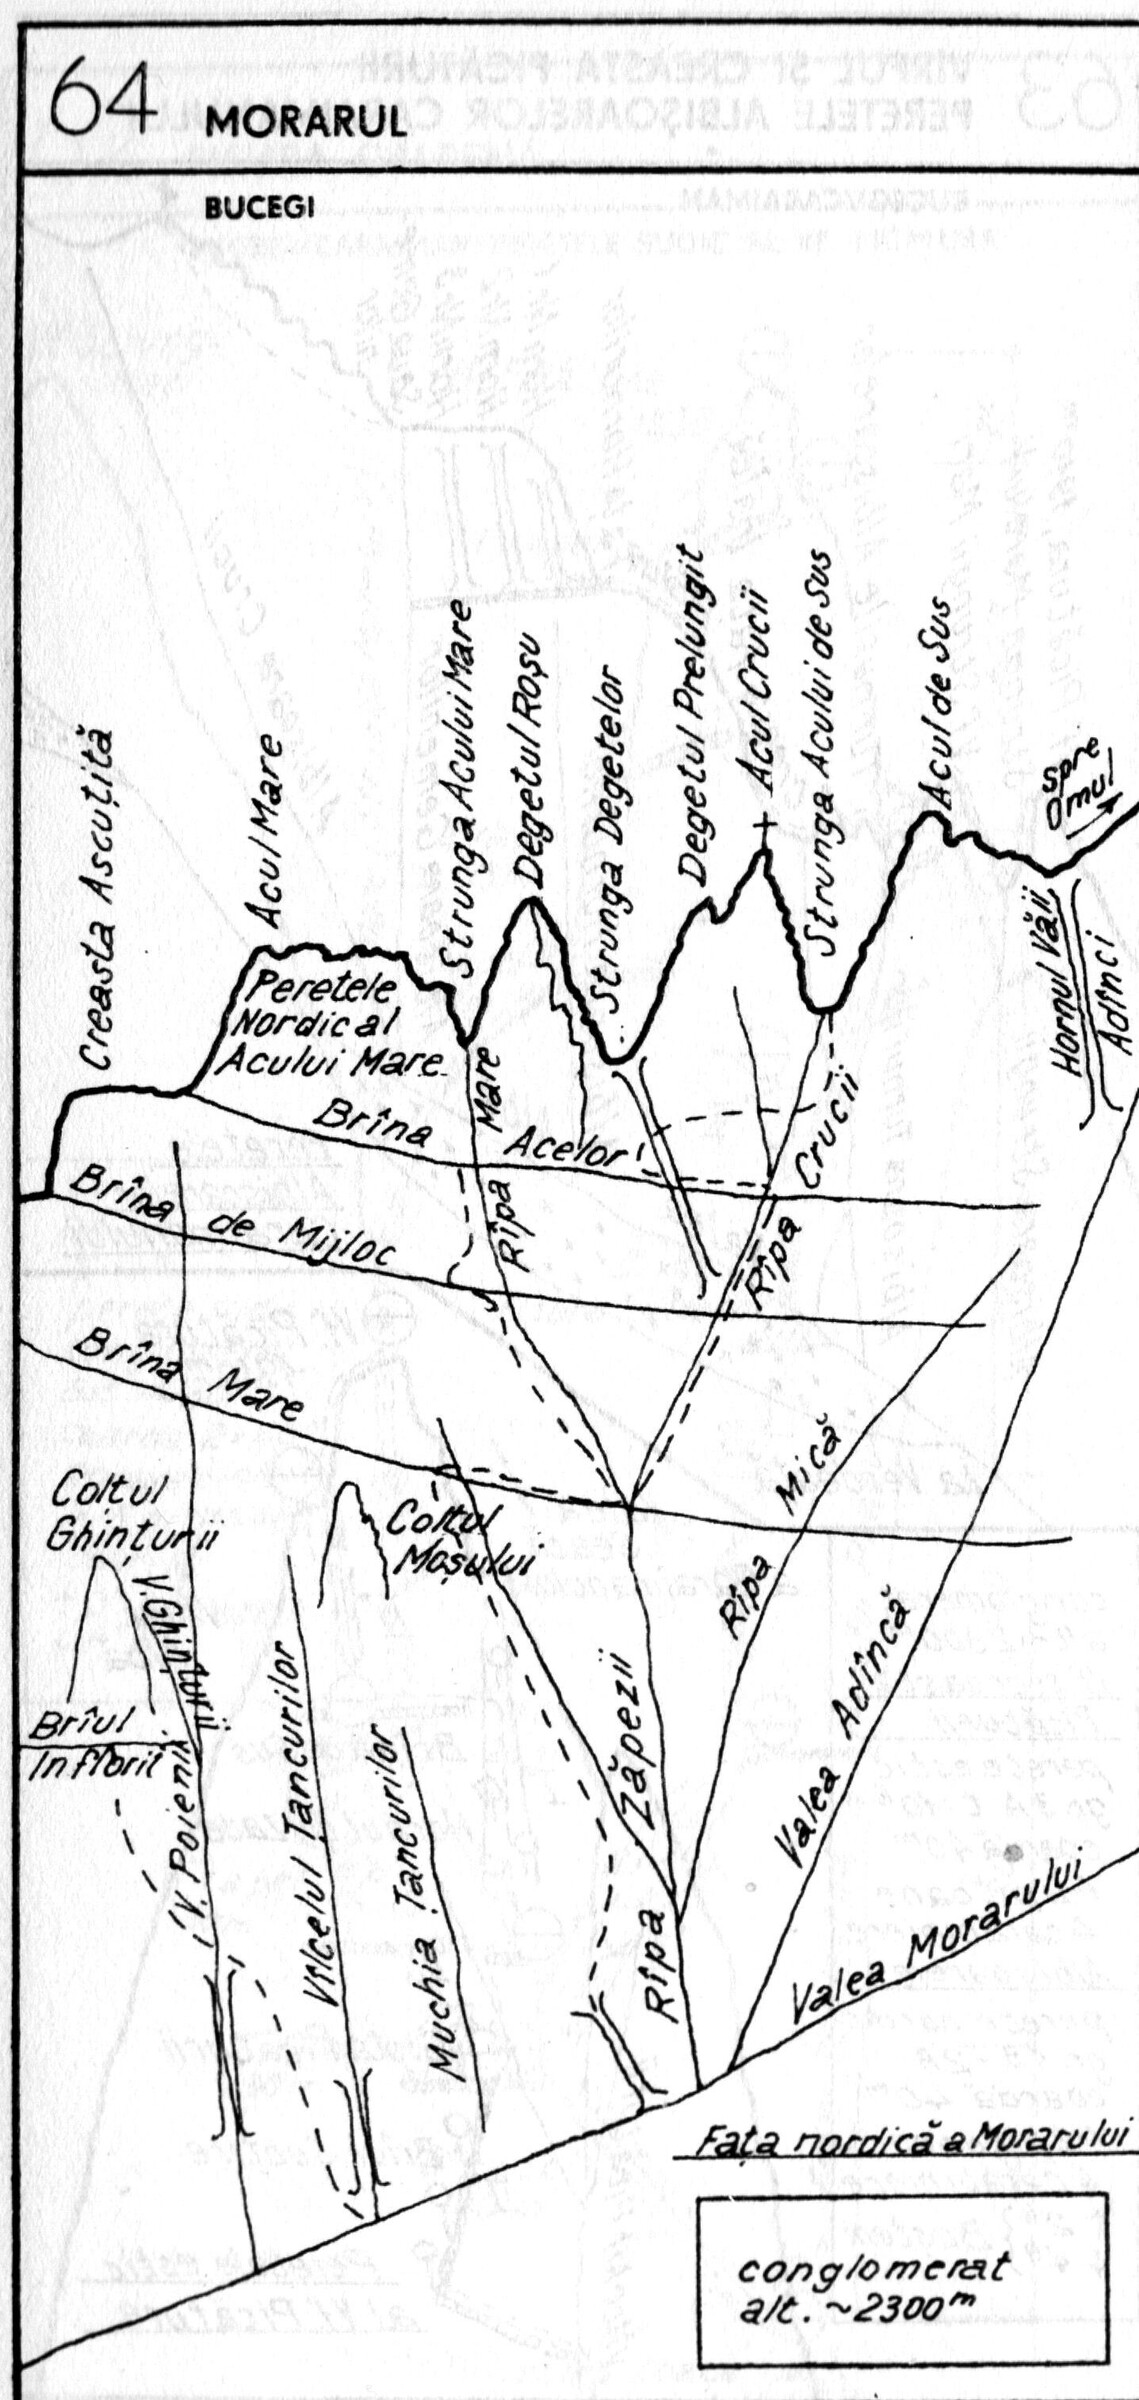 64 MORARUL
BUCEGI
Creasta Ascuțită
Acul Mare
Strunga Acului Mare
Degetul Roșu
Strunga Degetelor
Degetul Prelungit
Acul Crucii
Strunga Acului de Sus
Acul de Sus
spre
Omul
Hornul Văii
Adînci
Peretele
Nordic al
Acului Mare
Brîna Acelor
Rîpa Mare
Rîpa Crucii
Brîna de Mijloc
Brîna Mare
Colțul
Ghinturii
V. Ghinturii
Colțul
Moșului
Rîpa Mică
Brîul
Inflorit
V. Poienii
Vîlcelul Țancurilor
Muchia Țancurilor
Rîpa Zăpezii
Valea Adîncă
Valea Morarului
Fața nordică a Morarului
conglomerat
alt. ~2300m